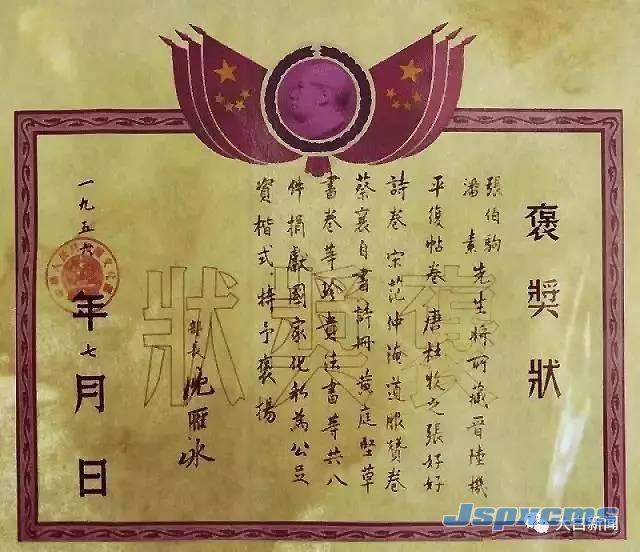 褒獎狀
張伯駒
潘素
先生將所藏晉陸機
平復帖卷唐杜牧之張好好
詩卷宋范仲淹道服贊卷
蔡襄自書詩冊黄庭堅草
書卷等珍貴法書等共八
件捐獻國家化私為公足
資楷式特予褒揚
部長沈雁冰
一九五六年七月日
褒獎狀
Jspxcms
大白新闻